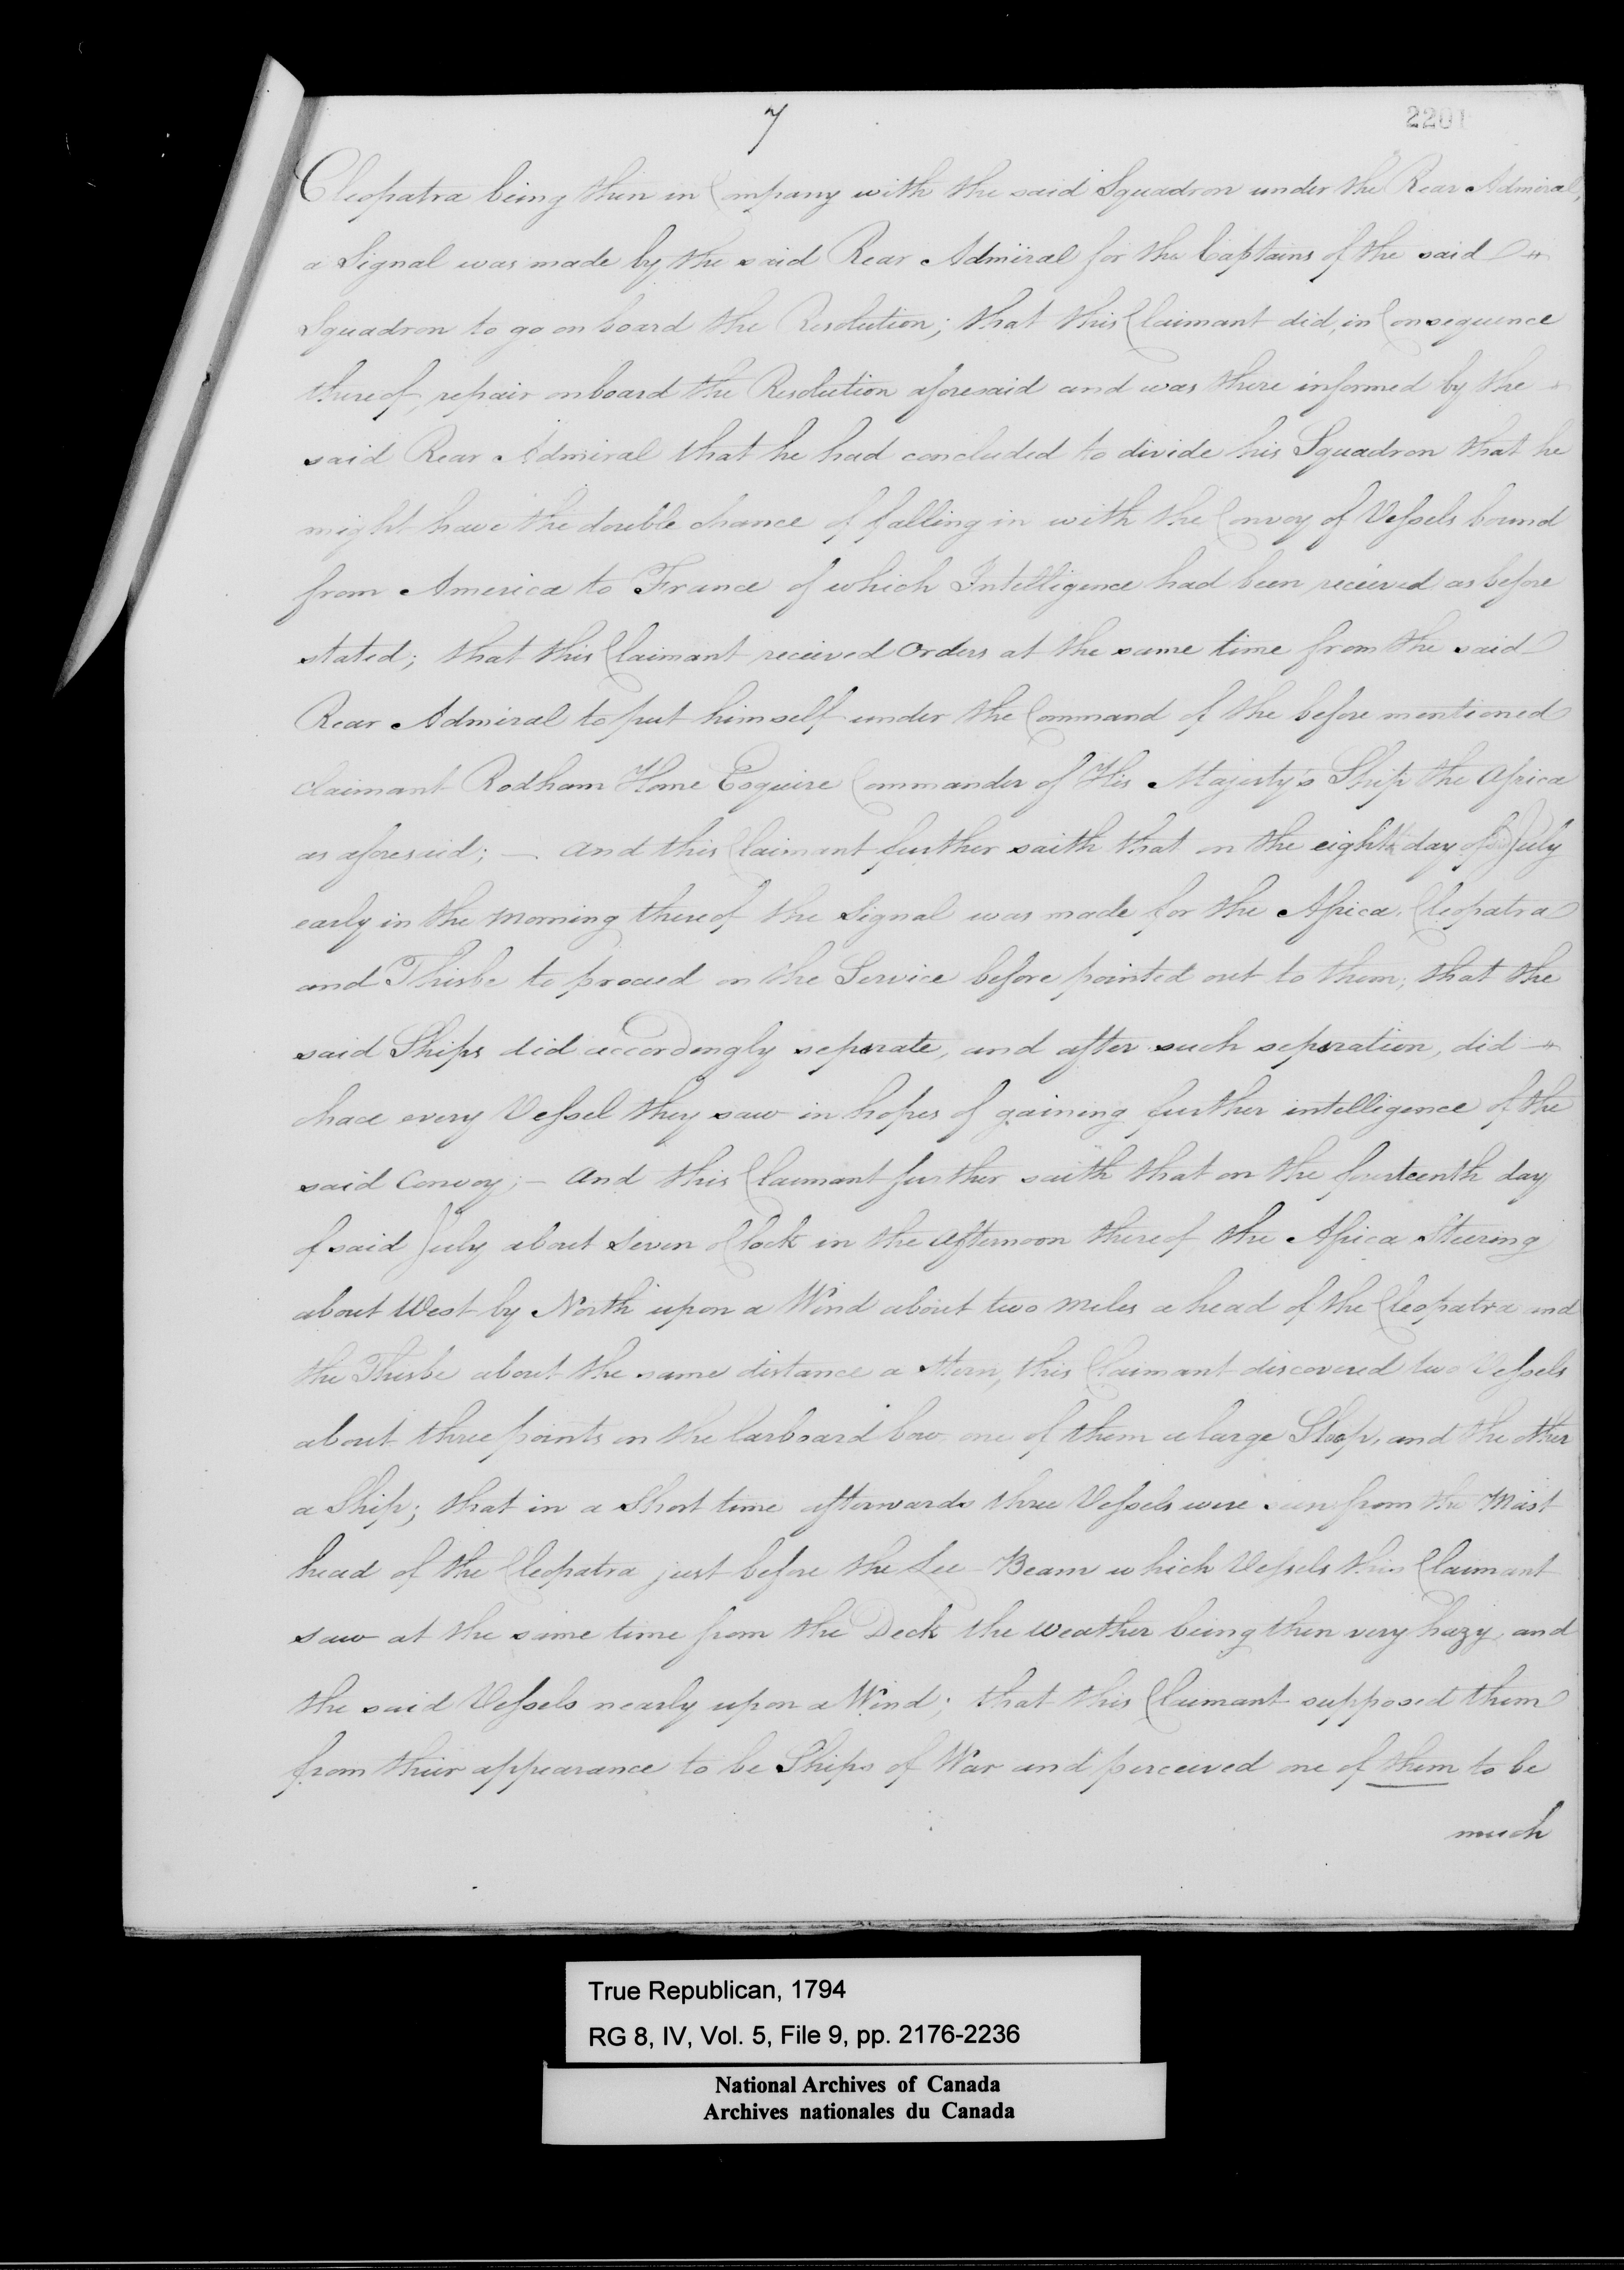 7
2201
Cleopatra being then in Company with the said Squadron under the Rear Admiral,
a Signal was made by the said Rear Admiral for the Captains of the said
Squadron to go on board the Resolution; that this Claimant did, in Consequence
thereof, repair onboard the Resolution aforesaid and was there informed by the
said Rear Admiral that he had concluded to divide his Squadron that he
might have the double chance of falling in with the Convoy of Vessels bound
from America to France of which Intelligence had been received as before
stated; that this Claimant received Orders at the same time from the said
Rear Admiral to put himself under the Command of the before mentioned
claimant Rodham Home Esquire Commander of His Majesty's Ship the Africa
as aforesaid; — And this Claimant further saith that on the eighth day of July
early in the Morning thereof the Signal was made for the Africa, Cleopatra
and Thisbe to proceed on the Service before pointed out to them; that the
said Ships did accordingly separate, and after such separation, did
chace every Vessel they saw in hopes of gaining further intelligence of the
said Convoy; — And this Claimant further saith that on the fourteenth day
of said July about Seven oClock in the Afternoon thereof the Africa Steering
about West by North upon a Wind about two Miles a head of the Cleopatra and
the Thisbe about the same distance a Stern, this Claimant discovered two Vessels
about three points on the larboard bow, one of them a large Sloop, and the other
a Ship; that in a Short time afterwards three Vessels were seen from the Mast
head of the Cleopatra just before the Lee-Beam which Vessels this Claimant
saw at the same time from the Deck the Weather being then very hazy, and
the said Vessels nearly upon a Wind; that this Claimant supposed them
from their appearance to be Ships of War and perceived one of them to be
much
True Republican, 1794
RG 8, IV, Vol. 5, File 9, pp. 2176-2236
National Archives of Canada
Archives nationales du Canada